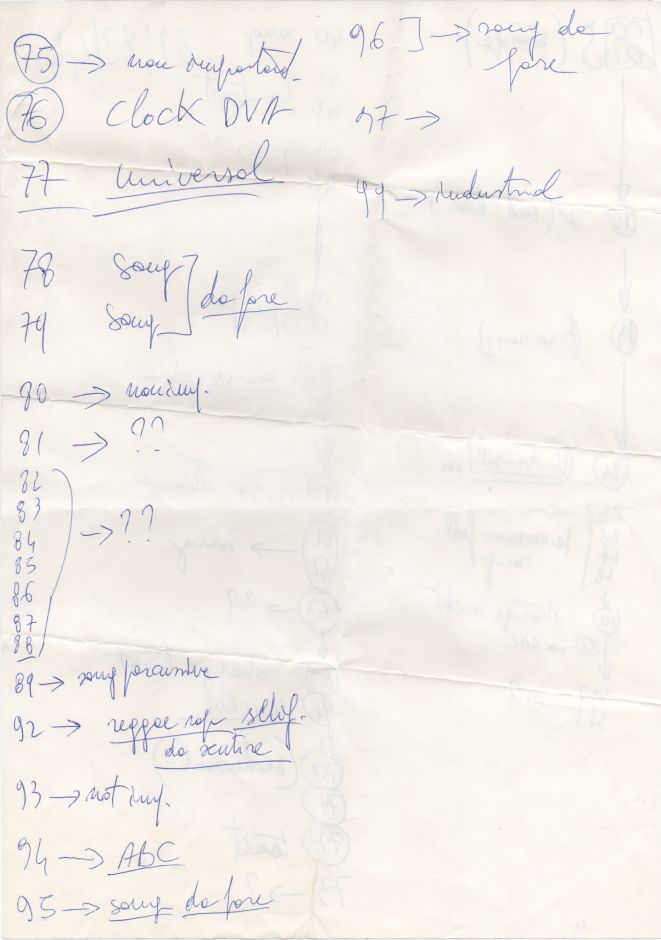 75 → non important.
76 Clock DVA
77 universal
78 song
79 song ] da fare
80 → non imp.
81 → ??
82
83
84
85
86
87
88
→ ??
89 → song percussive
92 → reggae rap
da sentire
93 → not imp.
94 → ABC
95 → song da fare
96 ] → song da
fare
97 →
99 → industrial